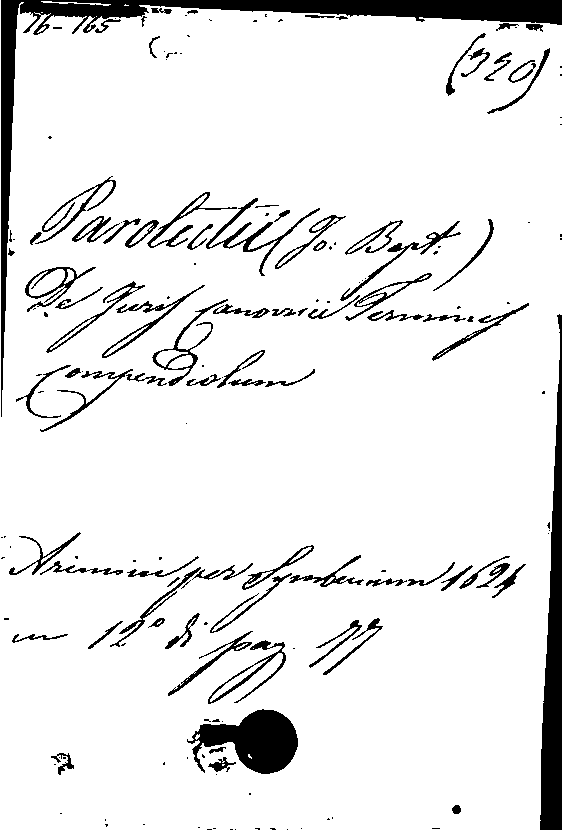 16-165
(320)
Parolectii (Jo: Bapt:)
De Juris canonici Terminis
Compendiolum
Arimini, per Symbenium 1624
in 12º di pag. 77